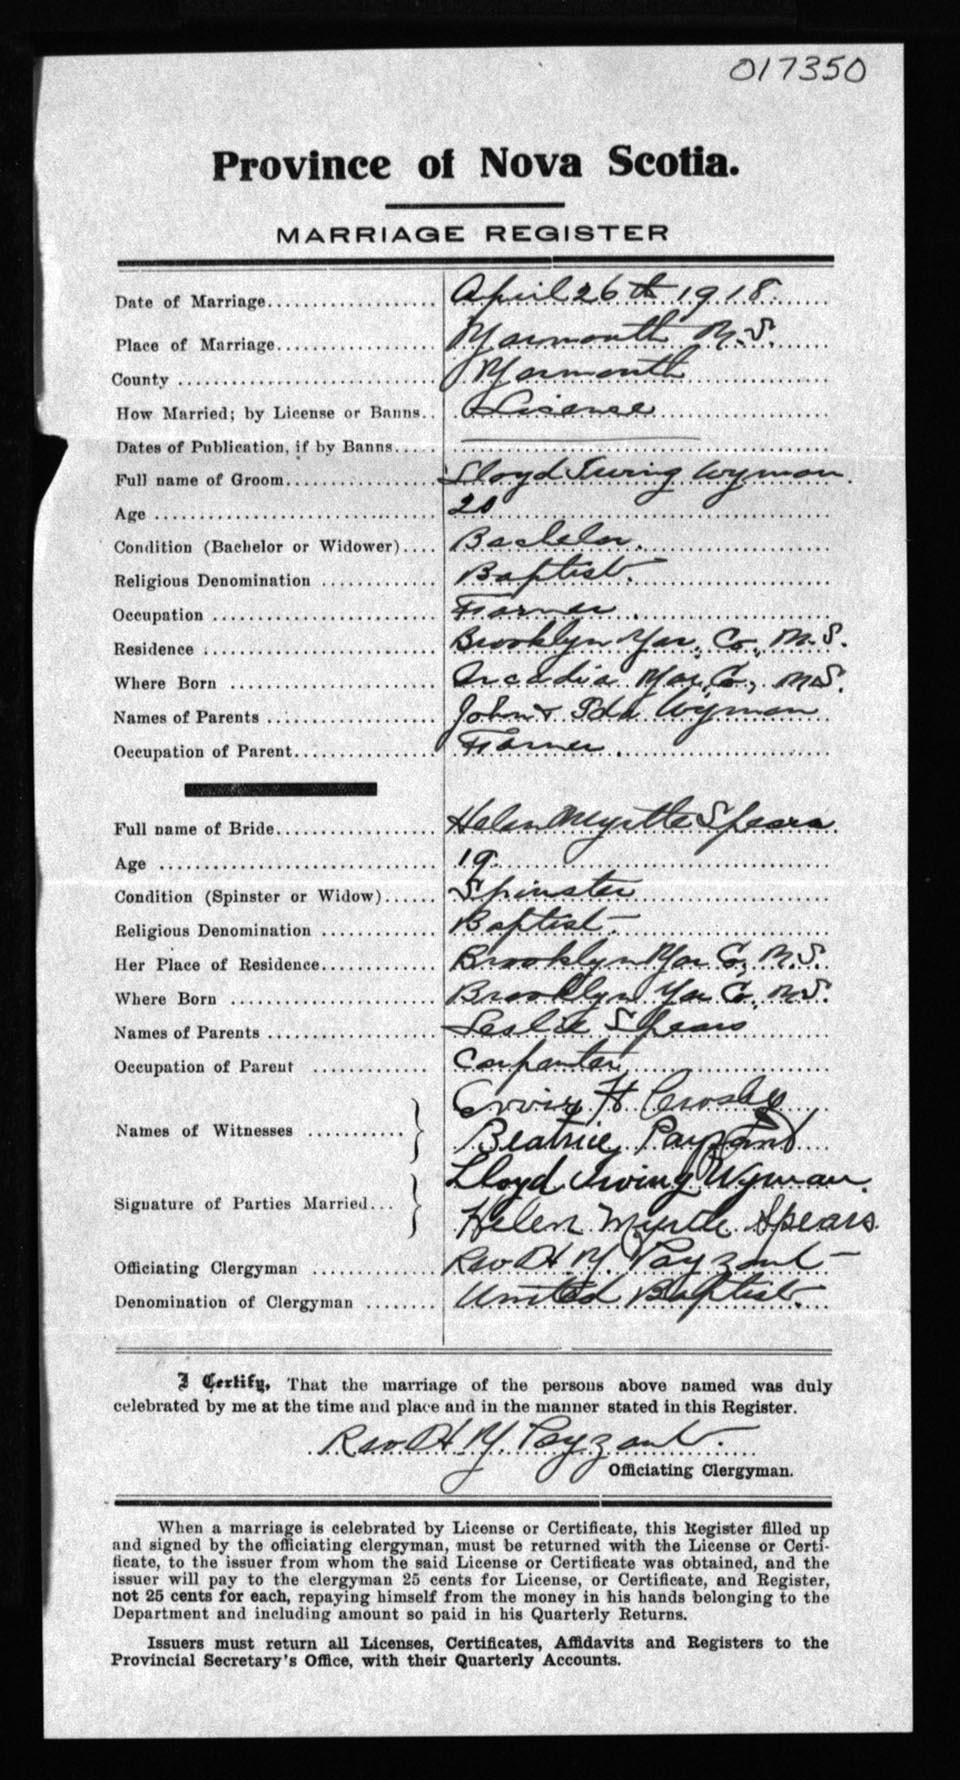 017350
Province of Nova Scotia.
MARRIAGE REGISTER
Date of Marriage.................. April 26th 1918.
Place of Marriage................. Yarmouth N.S.
County ........................... Yarmouth
How Married; by License or Banns.. License
Dates of Publication, if by Banns.....
Full name of Groom................ Lloyd Irving Wyman.
Age .............................. 20
Condition (Bachelor or Widower).... Bachelor.
Religious Denomination ........... Baptist.
Occupation ....................... Farmer.
Residence ........................ Brooklyn Yar. Co., N.S.
Where Born ....................... Arcadia Yar. Co., N.S.
Names of Parents ................. John & Ida Wyman
Occupation of Parent.............. Farmer.
Full name of Bride................ Helen Myrtle Spears.
Age .............................. 19.
Condition (Spinster or Widow)...... Spinster
Religious Denomination ........... Baptist.
Her Place of Residence............ Brooklyn Yar Co, N.S.
Where Born ....................... Brooklyn Yar Co, N.S.
Names of Parents ................. Leslie Spears
Occupation of Parent ............. Carpenter
Names of Witnesses ........... H Crosby
Beatrice Payzant
Signature of Parties Married... Lloyd Irving Wyman.
Helen Myrtle Spears
Officiating Clergyman ............ Rev H. Y. Payzant
Denomination of Clergyman ........ United Baptist.
I Certify, That the marriage of the persons above named was duly
celebrated by me at the time and place and in the manner stated in this Register.
Rev H Y. Payzant.
Officiating Clergyman.
When a marriage is celebrated by License or Certificate, this Register filled up
and signed by the officiating clergyman, must be returned with the License or Certi-
ficate, to the issuer from whom the said License or Certificate was obtained, and the
issuer will pay to the clergyman 25 cents for License, or Certificate, and Register,
not 25 cents for each, repaying himself from the money in his hands belonging to the
Department and including amount so paid in his Quarterly Returns.
Issuers must return all Licenses, Certificates, Affidavits and Registers to the
Provincial Secretary's Office, with their Quarterly Accounts.